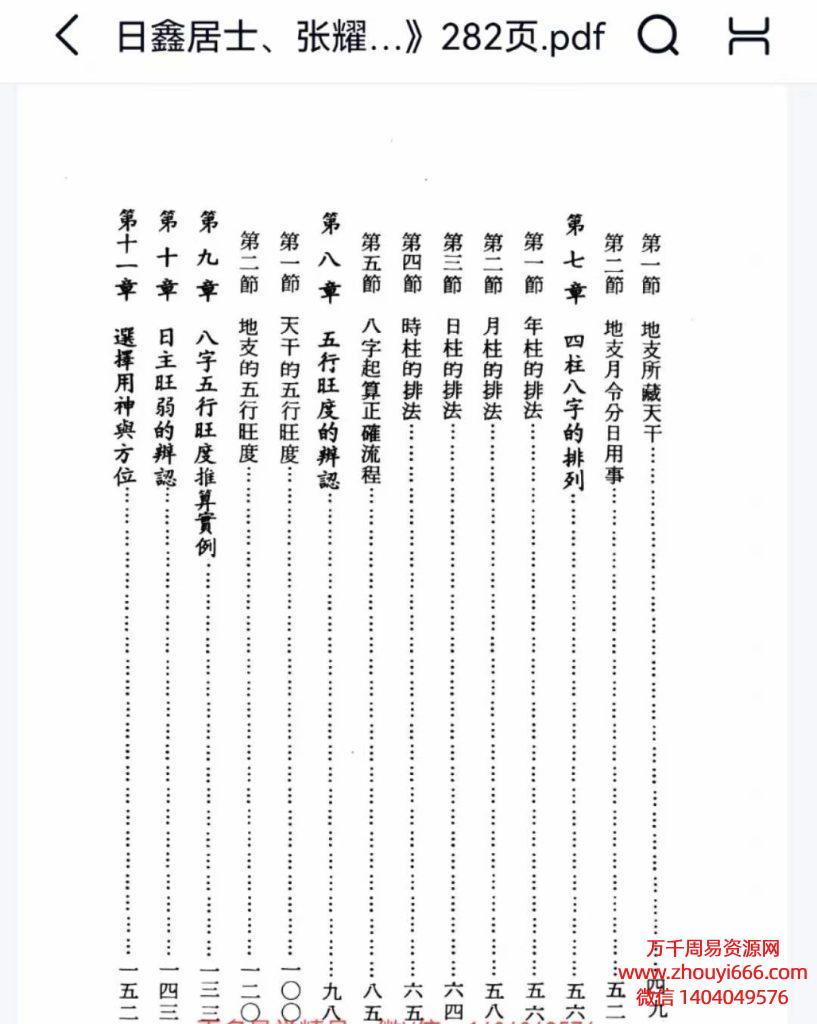 日鑫居士、张耀...》282页.pdf
第一節 地支所藏天干……四九
第二節 地支月令分日用事……五二
第七章 四柱八字的排列……五六
第一節 年柱的排法……五六
第二節 月柱的排法……五八
第三節 日柱的排法……六四
第四節 時柱的排法……六五
第五節 八字起算正確流程……八五
第八章 五行旺度的辨認……九八
第一節 天干的五行旺度……一〇〇
第二節 地支的五行旺度……一二〇
第九章 八字五行旺度推算實例……一三三
第十章 日主旺弱的辨認……一四三
第十一章 選擇用神與方位……一五二
万千周易资源网
www.zhouyi666.com
微信 1404049576